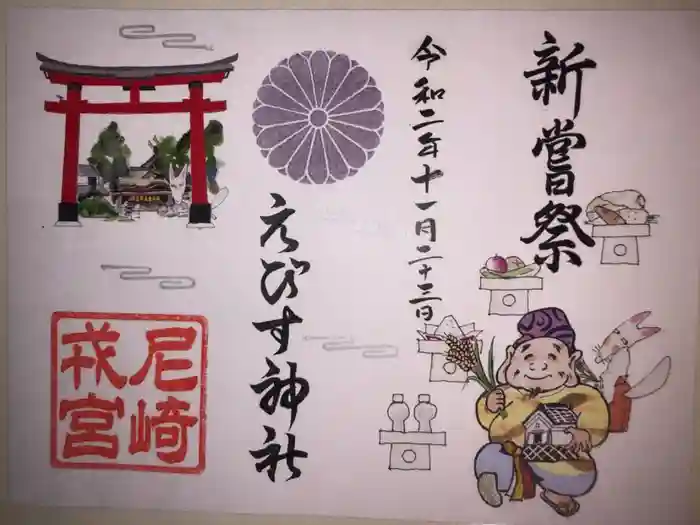 新嘗祭
令和二年十一月二十三日
えびす神社
尼崎
戎宮